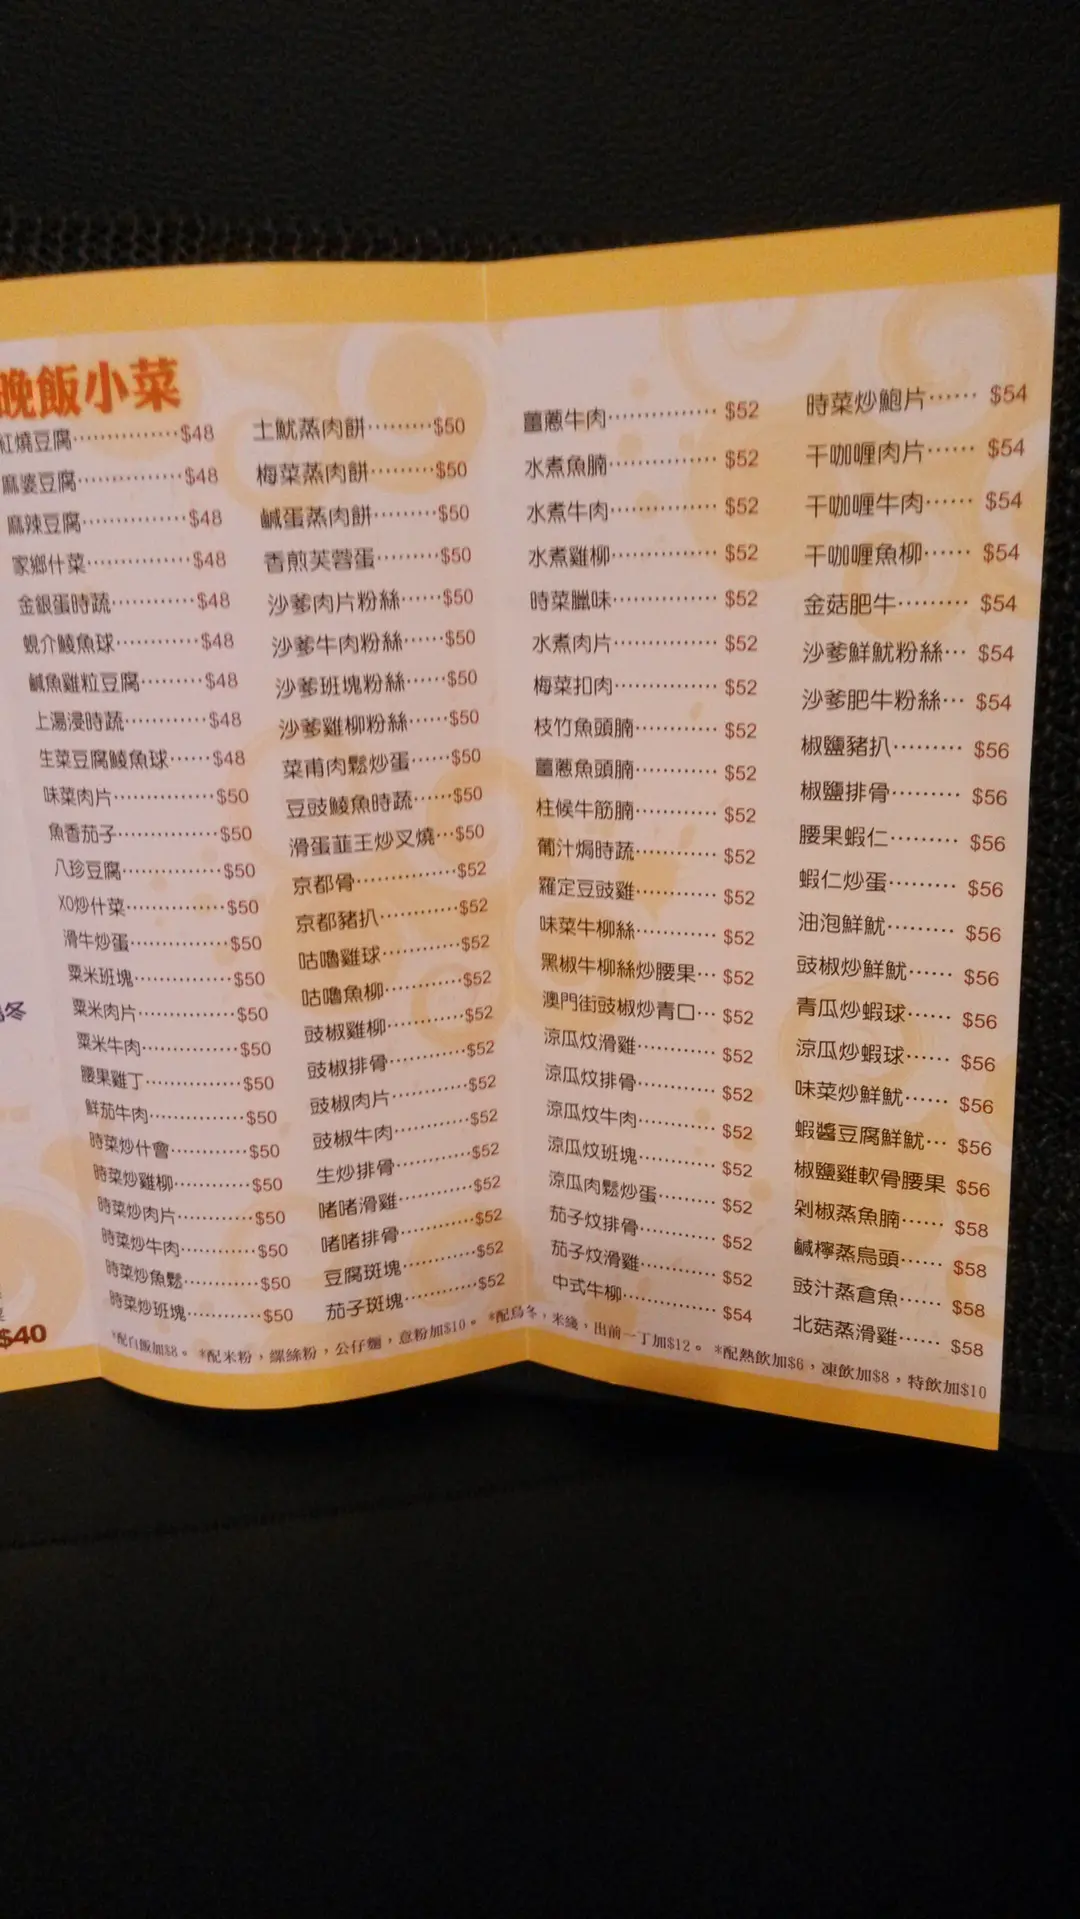 晚飯小菜
紅燒豆腐……………$48
麻婆豆腐……………$48
麻辣豆腐……………$48
家鄉什菜……………$48
金銀蛋時蔬…………$48
蜆介鯪魚球…………$48
鹹魚雞粒豆腐………$48
上湯浸時蔬…………$48
生菜豆腐鯪魚球……$48
味菜肉片……………$50
魚香茄子……………$50
八珍豆腐……………$50
XO炒什菜……………$50
滑牛炒蛋……………$50
粟米班塊……………$50
粟米肉片……………$50
粟米牛肉……………$50
腰果雞丁……………$50
鮮茄牛肉……………$50
時菜炒什會…………$50
時菜炒雞柳…………$50
時菜炒肉片…………$50
時菜炒牛肉…………$50
時菜炒魚鬆…………$50
時菜炒班塊…………$50
土魷蒸肉餅………$50
梅菜蒸肉餅………$50
鹹蛋蒸肉餅………$50
香煎芙蓉蛋………$50
沙爹肉片粉絲……$50
沙爹牛肉粉絲……$50
沙爹班塊粉絲……$50
沙爹雞柳粉絲……$50
菜甫肉鬆炒蛋……$50
豆豉鯪魚時蔬……$50
滑蛋韮王炒叉燒…$50
京都骨……………$52
京都豬扒…………$52
咕嚕雞球…………$52
咕嚕魚柳…………$52
豉椒雞柳…………$52
豉椒排骨…………$52
豉椒肉片…………$52
豉椒牛肉…………$52
生炒排骨…………$52
啫啫滑雞…………$52
啫啫排骨…………$52
豆腐斑塊…………$52
茄子斑塊…………$52
薑蔥牛肉……………$52
水煮魚腩……………$52
水煮牛肉……………$52
水煮雞柳……………$52
時菜臘味……………$52
水煮肉片……………$52
梅菜扣肉……………$52
枝竹魚頭腩…………$52
薑蔥魚頭腩…………$52
柱候牛筋腩…………$52
葡汁焗時蔬…………$52
羅定豆豉雞…………$52
味菜牛柳絲…………$52
黑椒牛柳絲炒腰果…$52
澳門街豉椒炒青口…$52
涼瓜炆滑雞…………$52
涼瓜炆排骨…………$52
涼瓜炆牛肉…………$52
涼瓜炆班塊…………$52
涼瓜肉鬆炒蛋………$52
茄子炆排骨…………$52
茄子炆滑雞…………$52
中式牛柳……………$54
時菜炒鮑片……$54
干咖喱肉片……$54
干咖喱牛肉……$54
干咖喱魚柳……$54
金菇肥牛………$54
沙爹鮮魷粉絲…$54
沙爹肥牛粉絲…$54
椒鹽豬扒………$56
椒鹽排骨………$56
腰果蝦仁………$56
蝦仁炒蛋………$56
油泡鮮魷………$56
豉椒炒鮮魷……$56
青瓜炒蝦球……$56
涼瓜炒蝦球……$56
味菜炒鮮魷……$56
蝦醬豆腐鮮魷…$56
椒鹽雞軟骨腰果 $56
剁椒蒸魚腩……$58
鹹檸蒸烏頭……$58
豉汁蒸倉魚……$58
北菇蒸滑雞……$58
*配白飯加$8。 *配米粉，螺絲粉，公仔麵，意粉加$10。 *配烏冬，米綫，出前一丁加$12。 *配熱飲加$6，凍飲加$8，特飲加$10
冬
$40